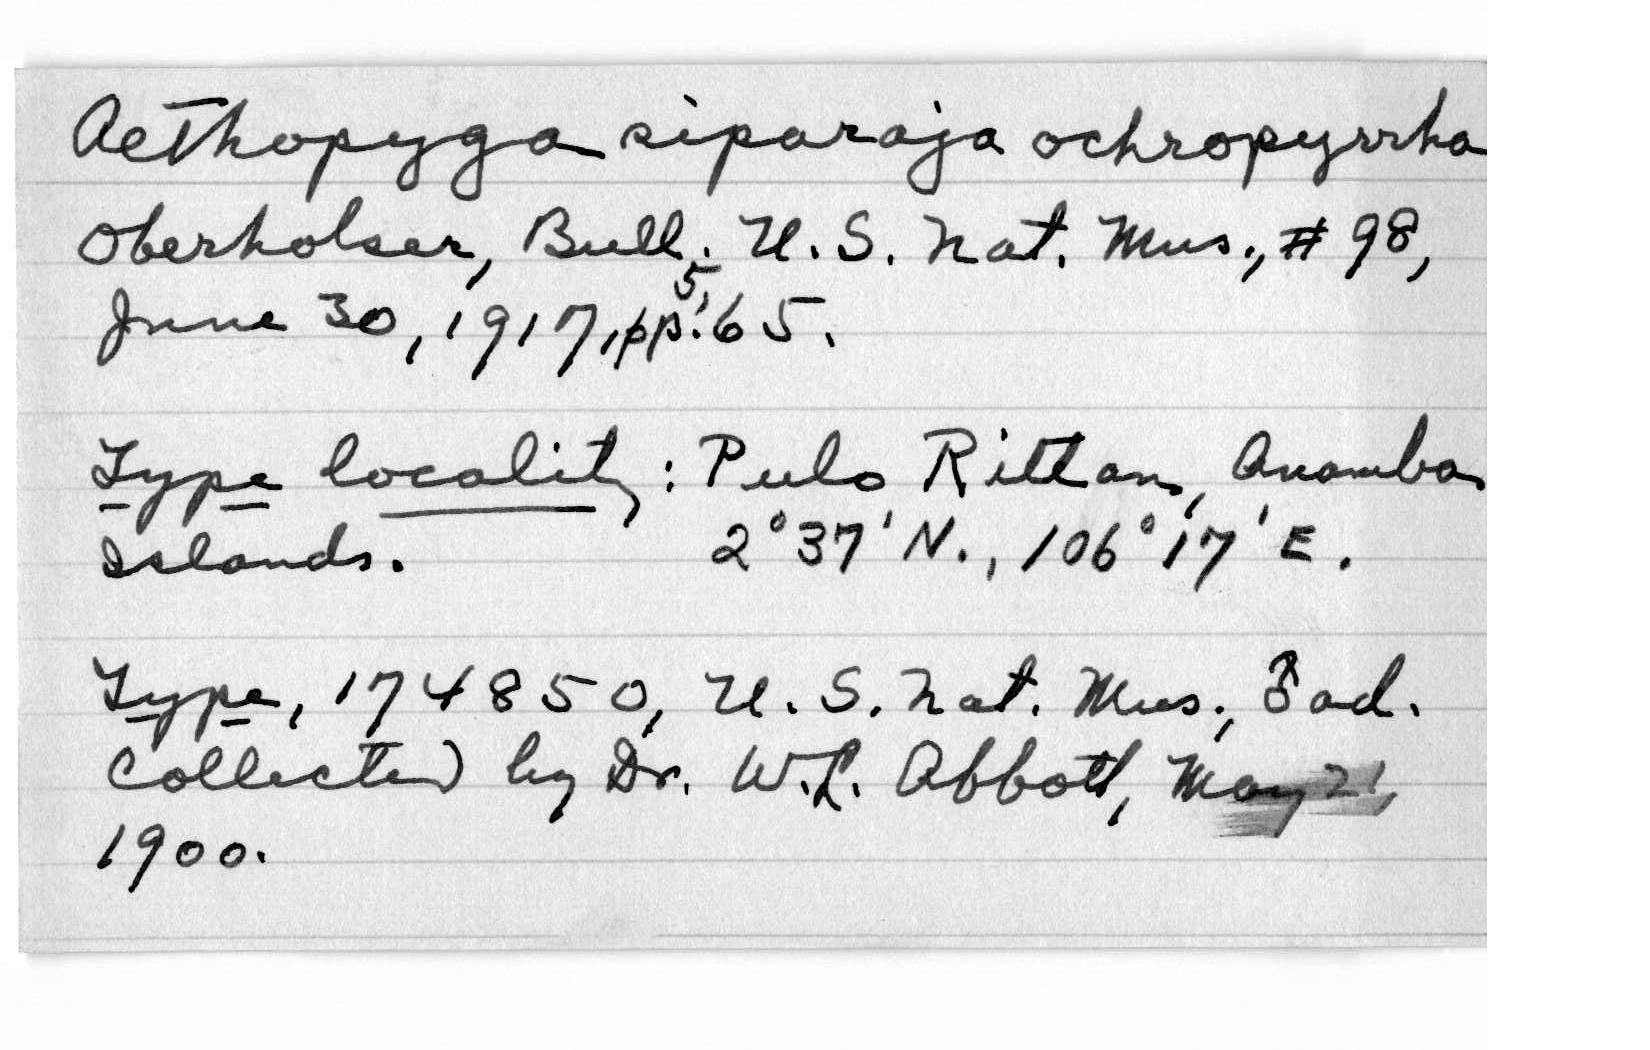 Aethopyga siparaja ochropyrrha
Oberholser, Bull. U.S. Nat. Mus., #98,
June 30, 1917, pp. 5, 65.
Type locality: Pulo Rittan, Anamba
Islands. 2°37'N., 106°17'E.
Type, 174850, U.S. Nat. Mus., ♂ ad.
Collected by Dr. W.L. Abbott, May 21,
1900.